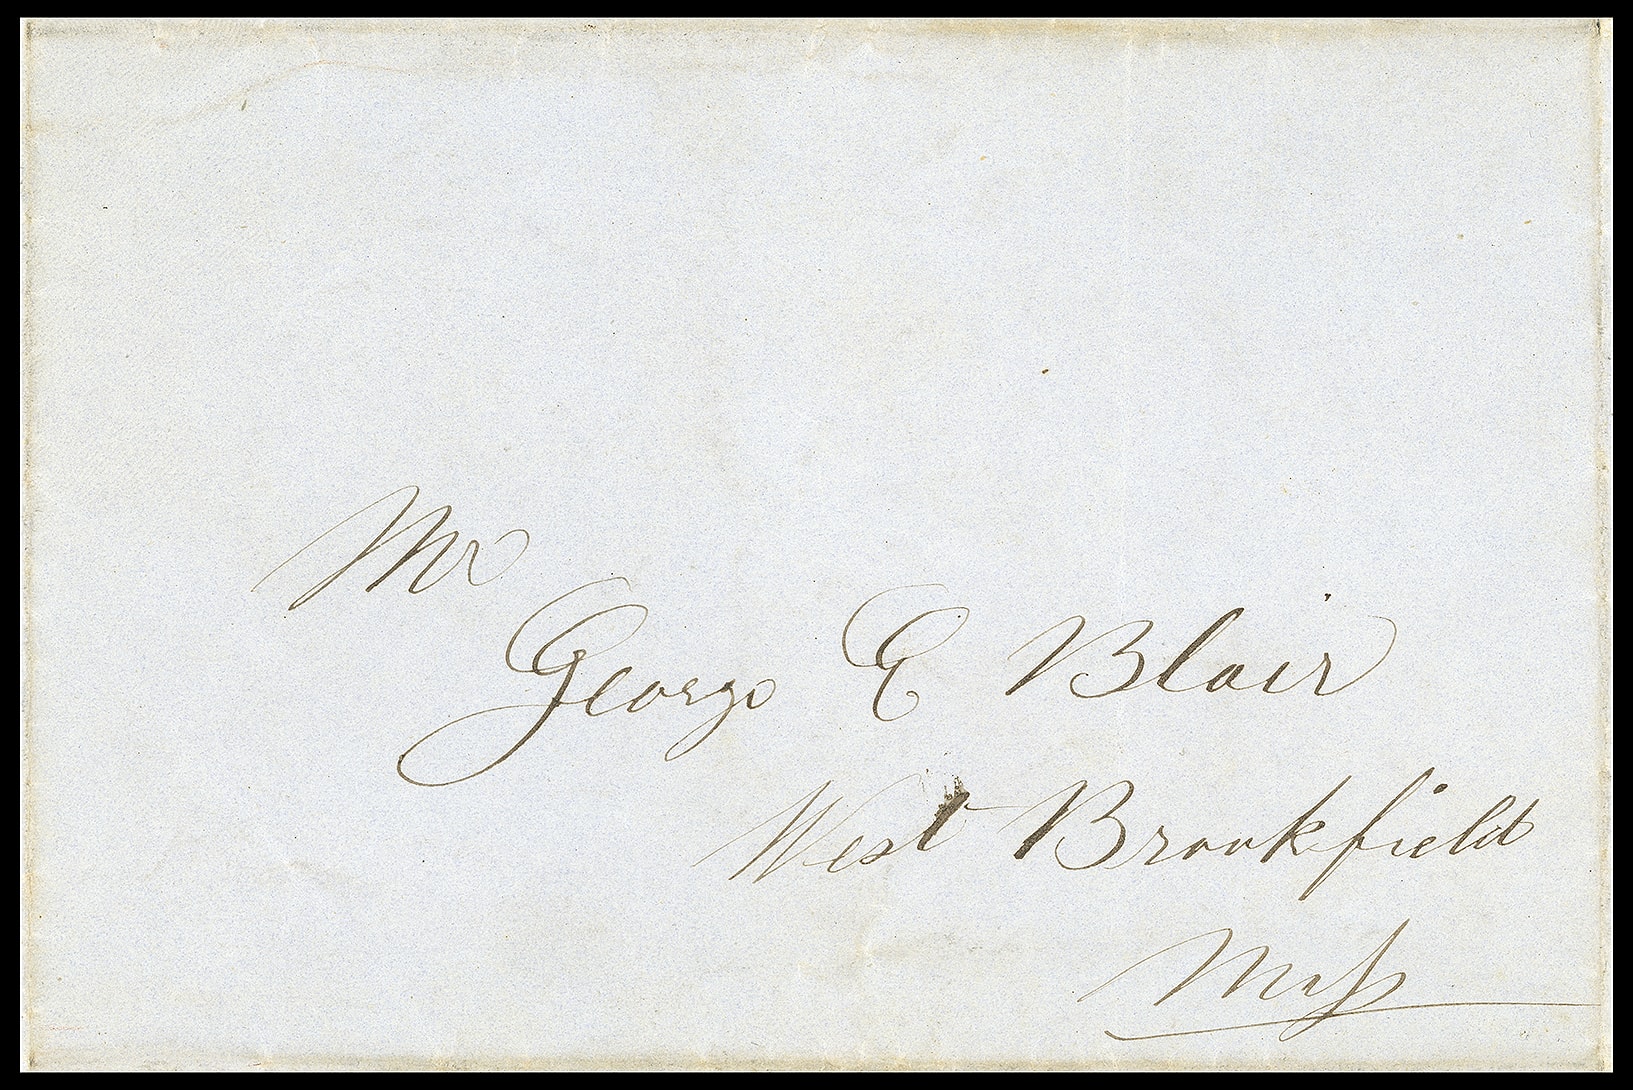 Mr
George E Blair
West Brookfield
Mass